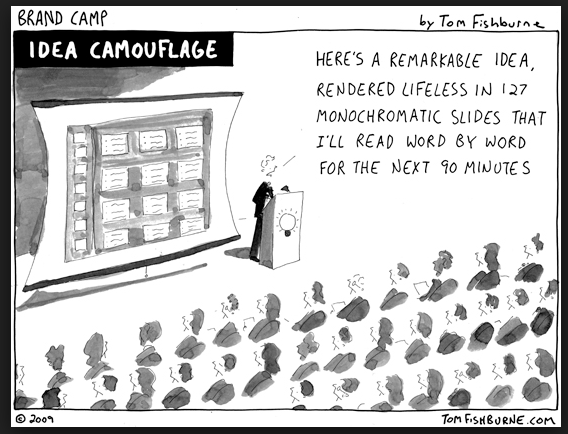 BRAND CAMP
by Tom Fishburne
IDEA CAMOUFLAGE
HERE'S A REMARKABLE IDEA,
RENDERED LIFELESS IN 127
MONOCHROMATIC SLIDES THAT
I'LL READ WORD BY WORD
FOR THE NEXT 90 MINUTES
© 2009
TOMFISHBURNE.COM